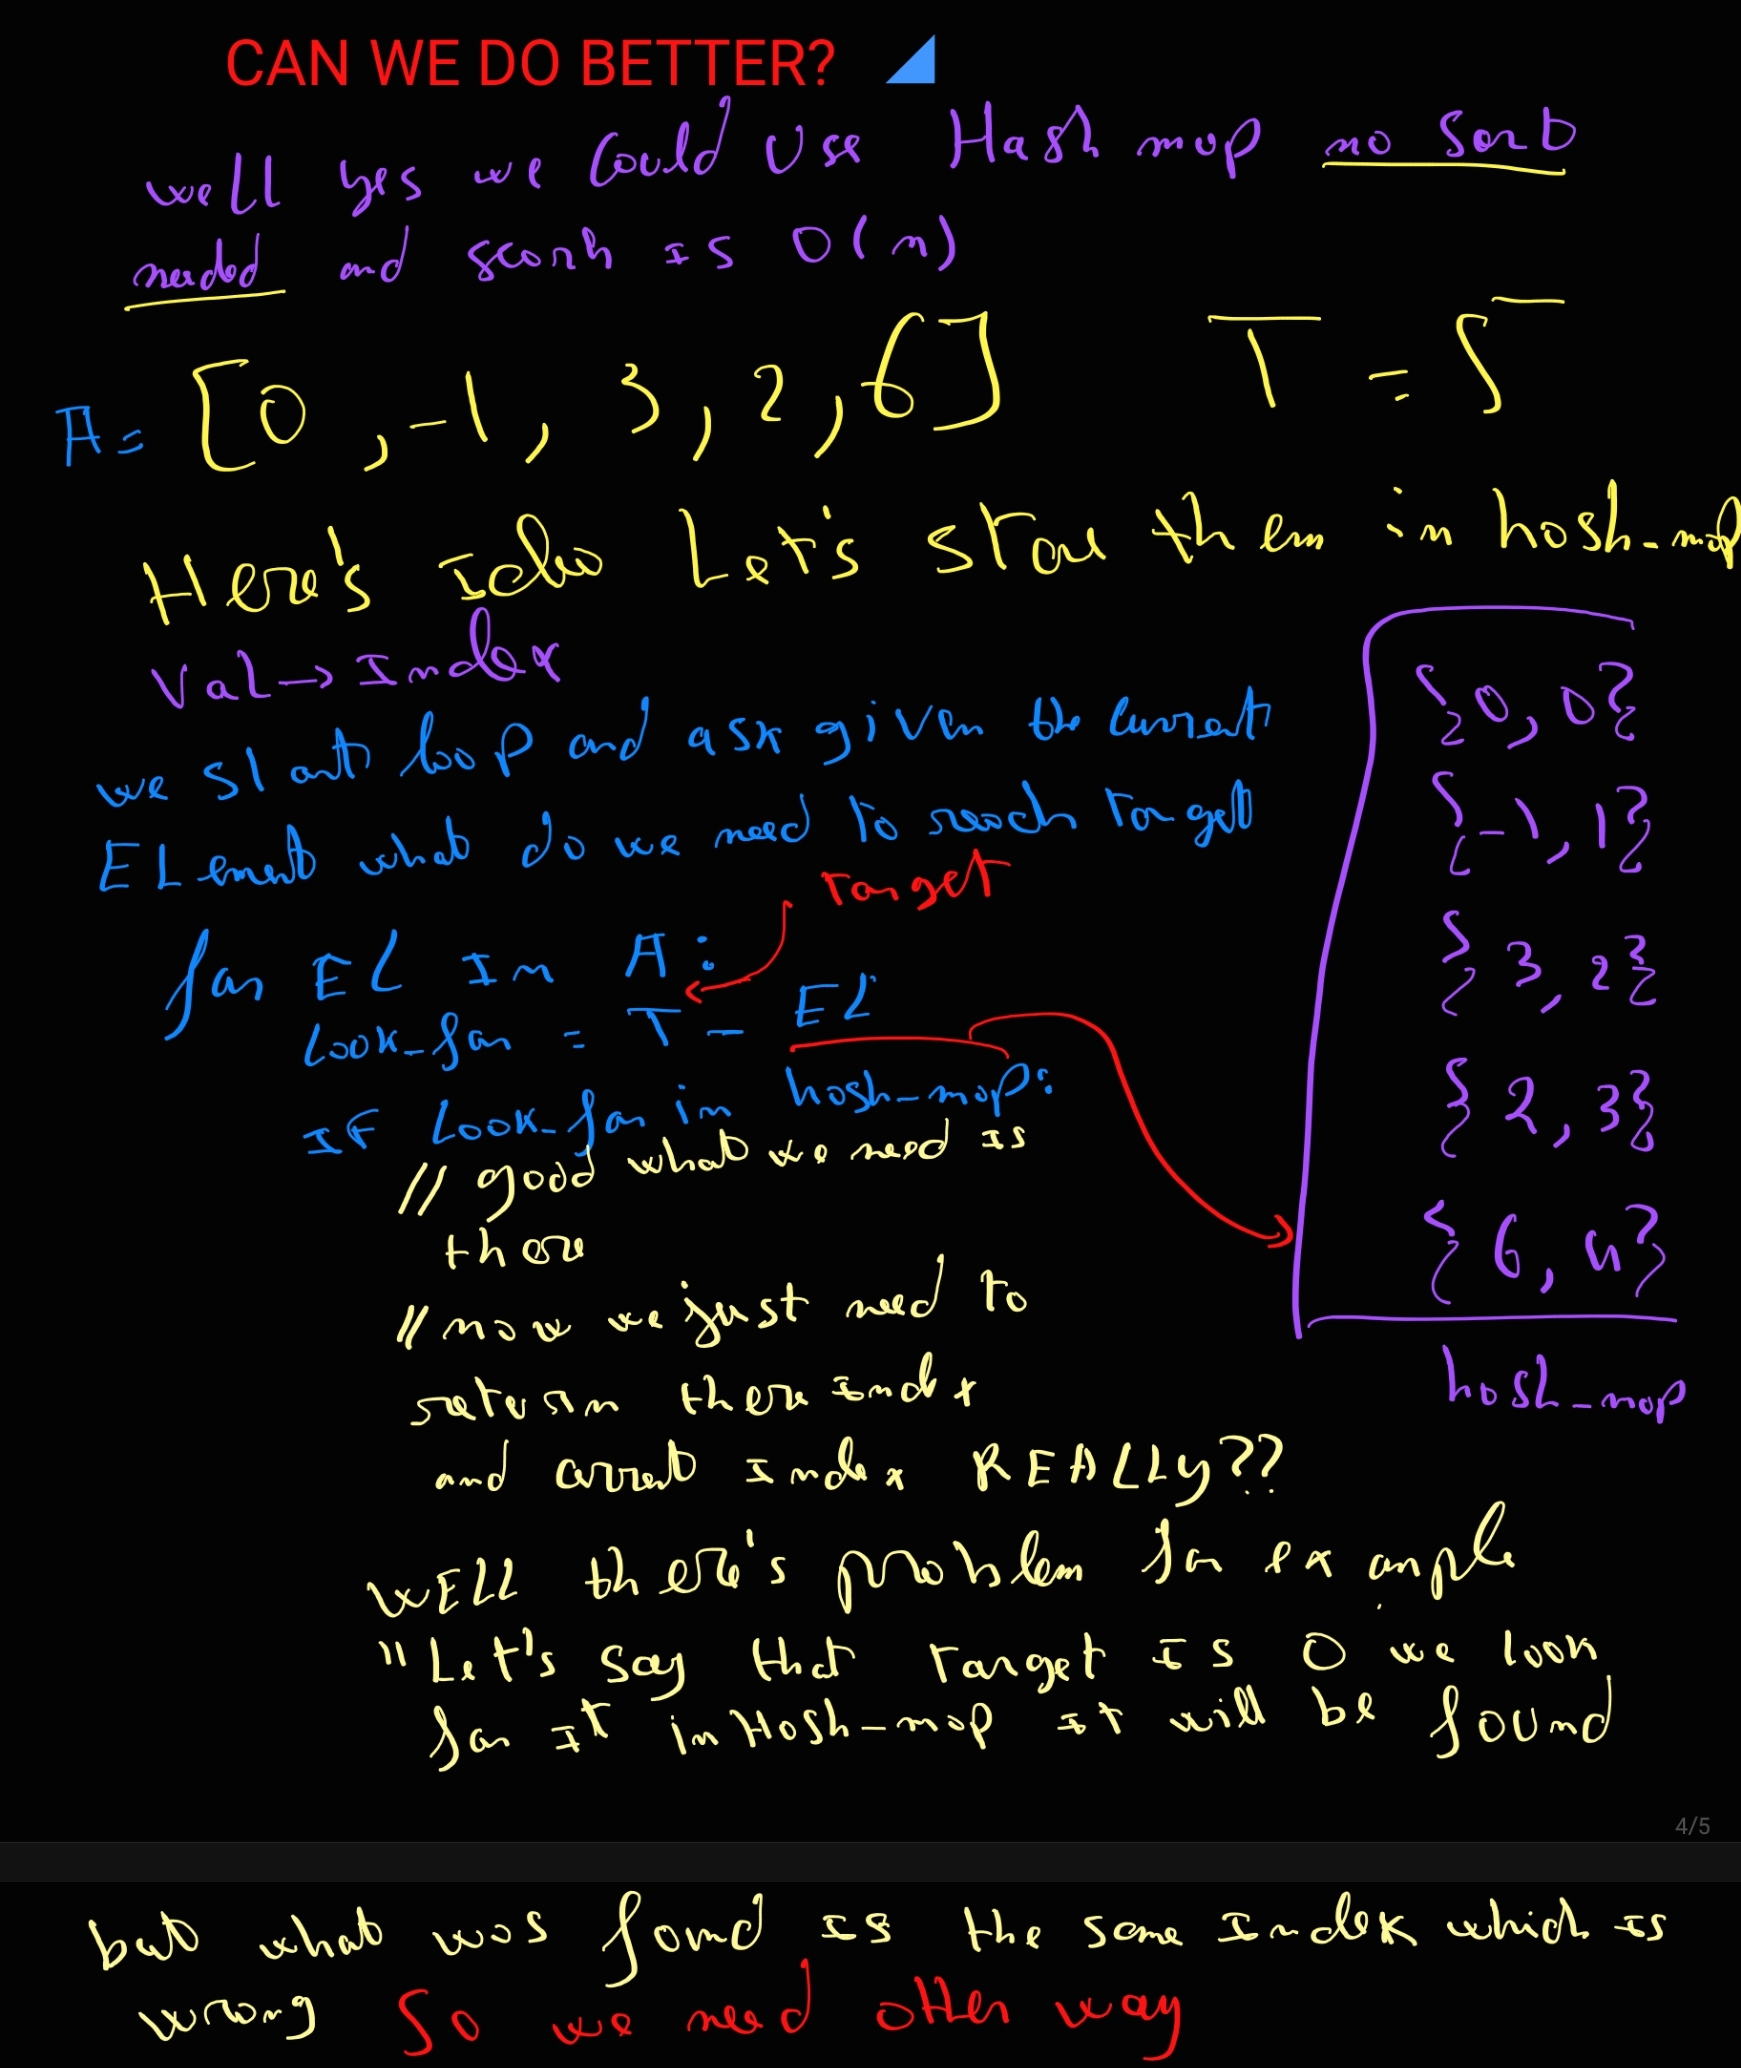 CAN WE DO BETTER?
well yes we Could Use Hash map no Sort
needed and search is O(n)
A= [0, -1, 3, 2, 6] T = 5
Here's Idea Let's store them in hash_map
Val → Index
{0, 0}
we start loop and ask given the current
{-1, 1}
ELement what do we need to reach target
Target
for EL In A:
{3, 2}
Look_for = T - EL
IF Look_for in hash_map:
{2, 3}
// good what we need is
there
{6, 4}
// now we just need to
return there index
hash_map
and current Index REALLY??
WELL there's problem for example
"Let's say that Target is 0 we look
for it in Hash_map it will be found
4/5
but what was found is the same Index which is
wrong So we need other way